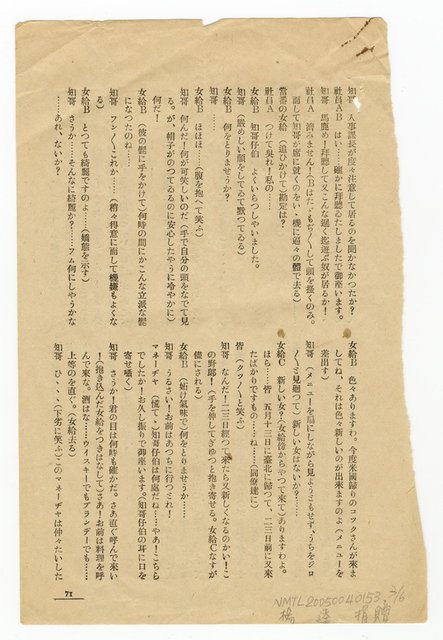 知哥　人事課長が度々注意して居るのを聞かなかつたか？
社員AB　はい……確かに拜聽いたしましたで御座います。
知哥　馬鹿め！拜聽して又こんな遲く迄遊ぶ奴が居るか！
社員A　濟みません！（Bはたゞもぢ／＼して頭を搔くのみ。
而して知哥が席に就くのをいゝ機に逼々の體で去る）
當番の女給　（追ひかけて）勘定は？
社員A　つけて吳れ！私の……
女給B　知哥仔伯　よくいらつしやいました。
知哥　……（嚴めしい顏をしてゐて默つてゐる）
女給B　何をとりませうか？
知哥　……
女給B　ほほほ……（腹を抱へて笑ふ）
知哥　何んだ！何が可笑しいのだ（手で自分の頭をなでて見
る。が、帽子がのつてゐるのに安心したやうに冷やかに）
何だ！
女給B　（彼の髭に手をかけて）何時の間にかこんな立派な髭
になつたのね……
知哥　フン／＼これか……（稍々得意に而して機嫌もよくな
る）さうか！
女給B　とつても綺麗ですのよ……（嬌態を示す）
知哥　さうか……そんなに綺麗か？……フム何にしやうかな
……あれ、ないか？
女給B　色々ありますわ。今度米國歸りのコックさんが來ま
してね、それは色々新しいのが出來ますのよ（メニューを
差出す）
知哥　（メニューを扇にしながら見ようともせず、うちをジロ
／＼と見廻つて）新しい女はないか？……
女給C　新しい女？（女給傍からやつて來て）ありますわよ。
ほら……皆　五月十二日に臺北に歸つて、二三日前に又來
たばかりですもの……ね……（同僚達に）
皆　（クツ／＼と笑ふ）
知哥　なんだ！二三日經つて來たら又新しくなるのかい！こ
の野郞！（手を伸してぎゆつと抱き寄せる。女給Cなすが
儘にされる）
女給B　（妬け氣味で）何をとりませうか……
知哥　うるさい！お前はあつちに行つとれ！
マネーヂャ　（慌てゝ）知哥仔伯は何處だね……あ！こちら
でしたか！お久し振りで御座います。（知哥仔伯の耳に口を
寄せ囁く）
知哥　さうか！君の目は何時も慥かだ。さあ直ぐ呼んで來い
！（抱き込んだ女給をつきはなして）さあ！お前は料理を呼
んで來な。酒はな……ウイスキーでもブランデーでも……
上等のを直ぐ。（女給去る）
知哥　ひ、、、（下劣に笑ふ）このマネーヂャは仲々たいした
71
NMTL20050040153 3/6
楊逵 捐贈